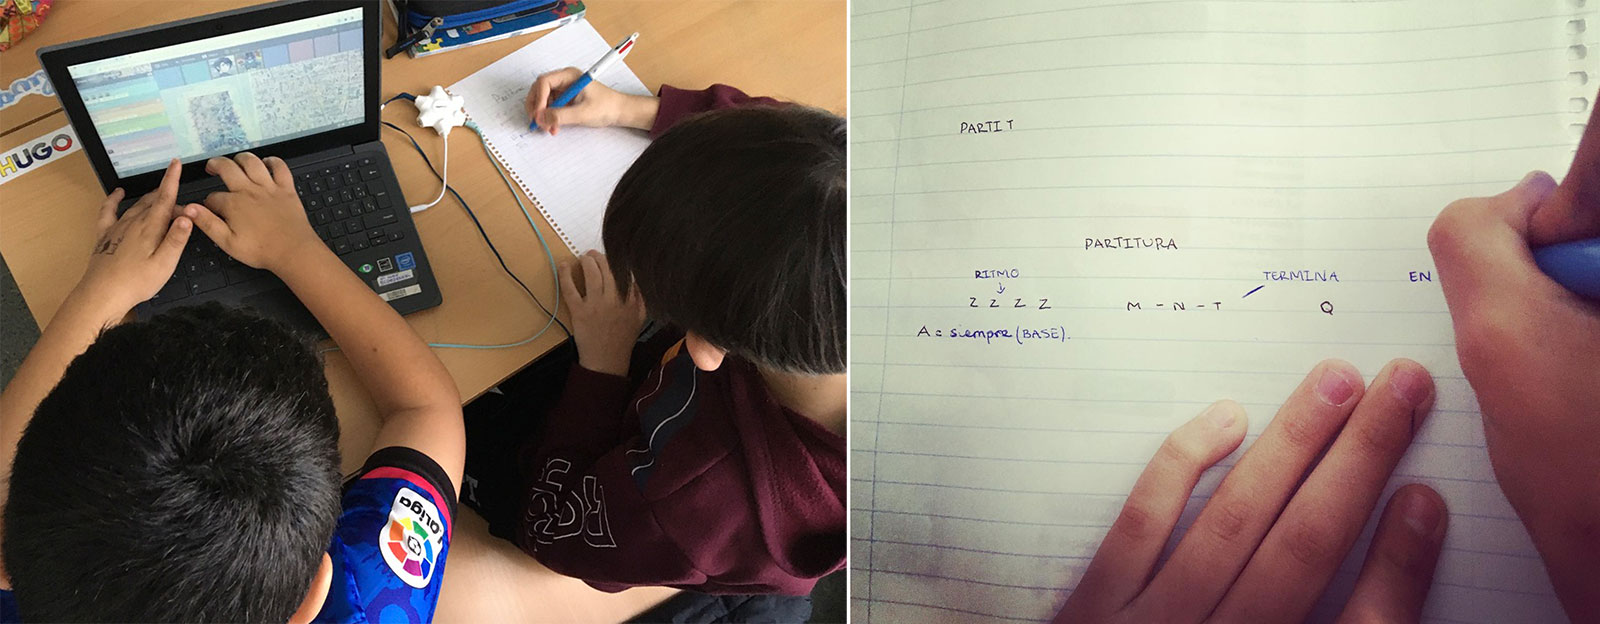 HUGO
LaLiga
PARTIT
PARTITURA
RITMO
TERMINA
EN
Z Z Z Z
M - N - T
Q
A = siempre (BASE).